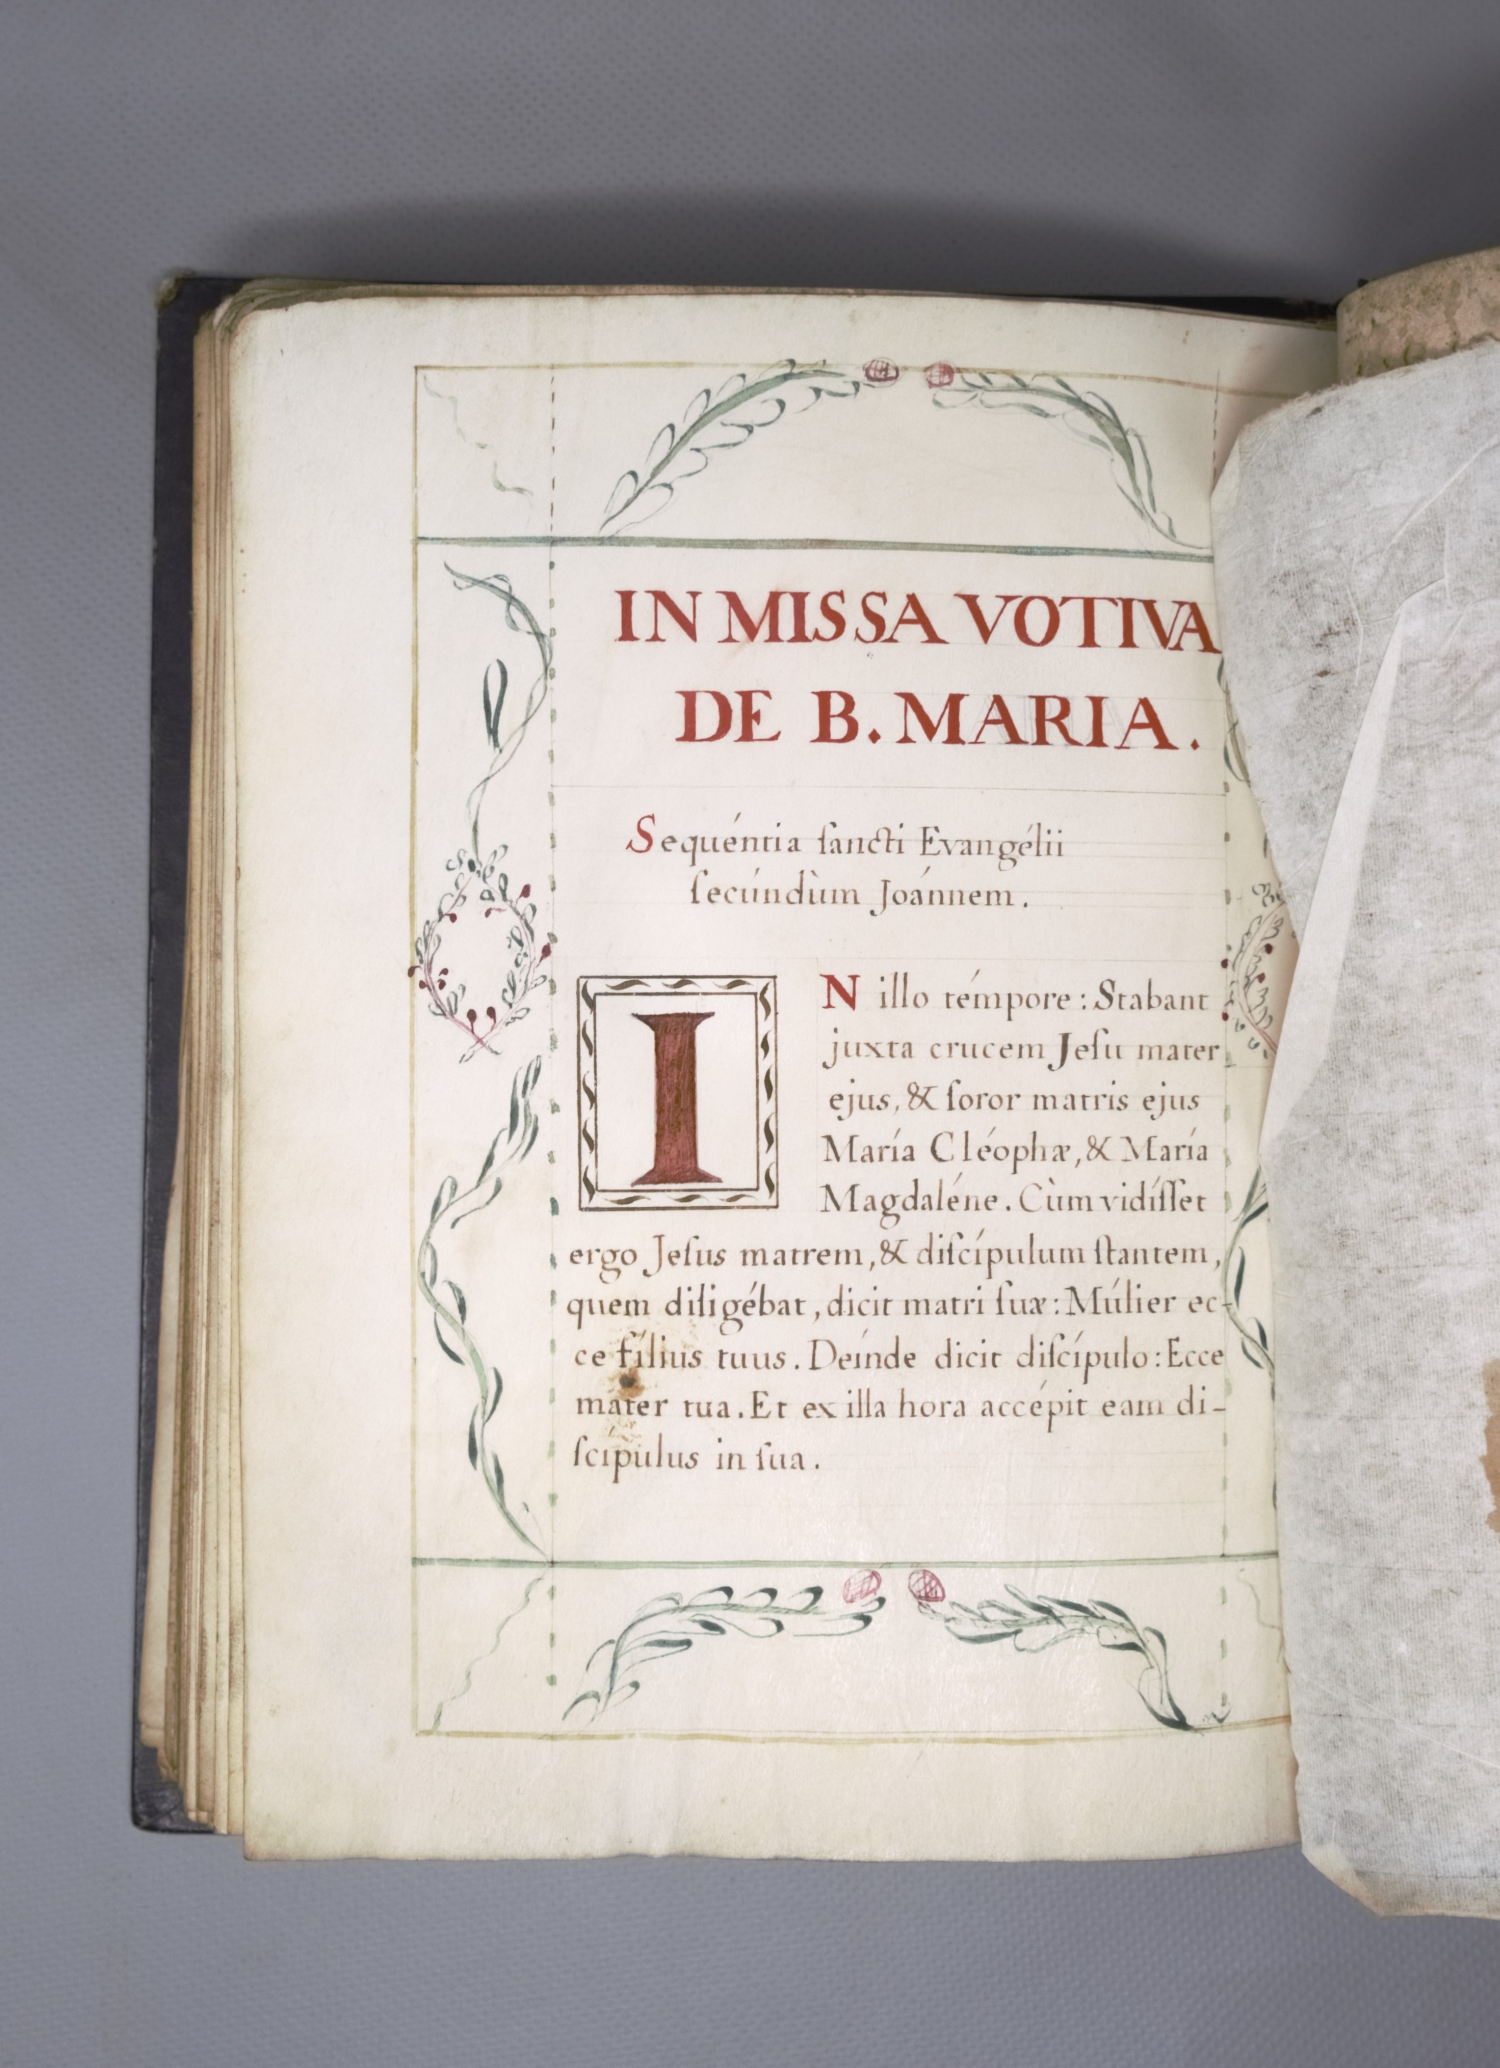 IN MISSA VOTIVA
DE B. MARIA.
Sequéntia ſancti Evangélii
ſecúndùm Joánnem.
IN illo témpore: Stabant
juxta crucem Jeſu mater
ejus, & ſoror matris ejus
María Cléophæ, & María
Magdaléne. Cùm vidíſſet
ergo Jeſus matrem, & diſcípulum ſtantem,
quem diligébat, dicit matri ſuæ: Múlier ec-
ce fílius tuus. Deínde dicit diſcípulo: Ecce
mater tua. Et ex illa hora accépit eam di-
ſcipulus in ſua.